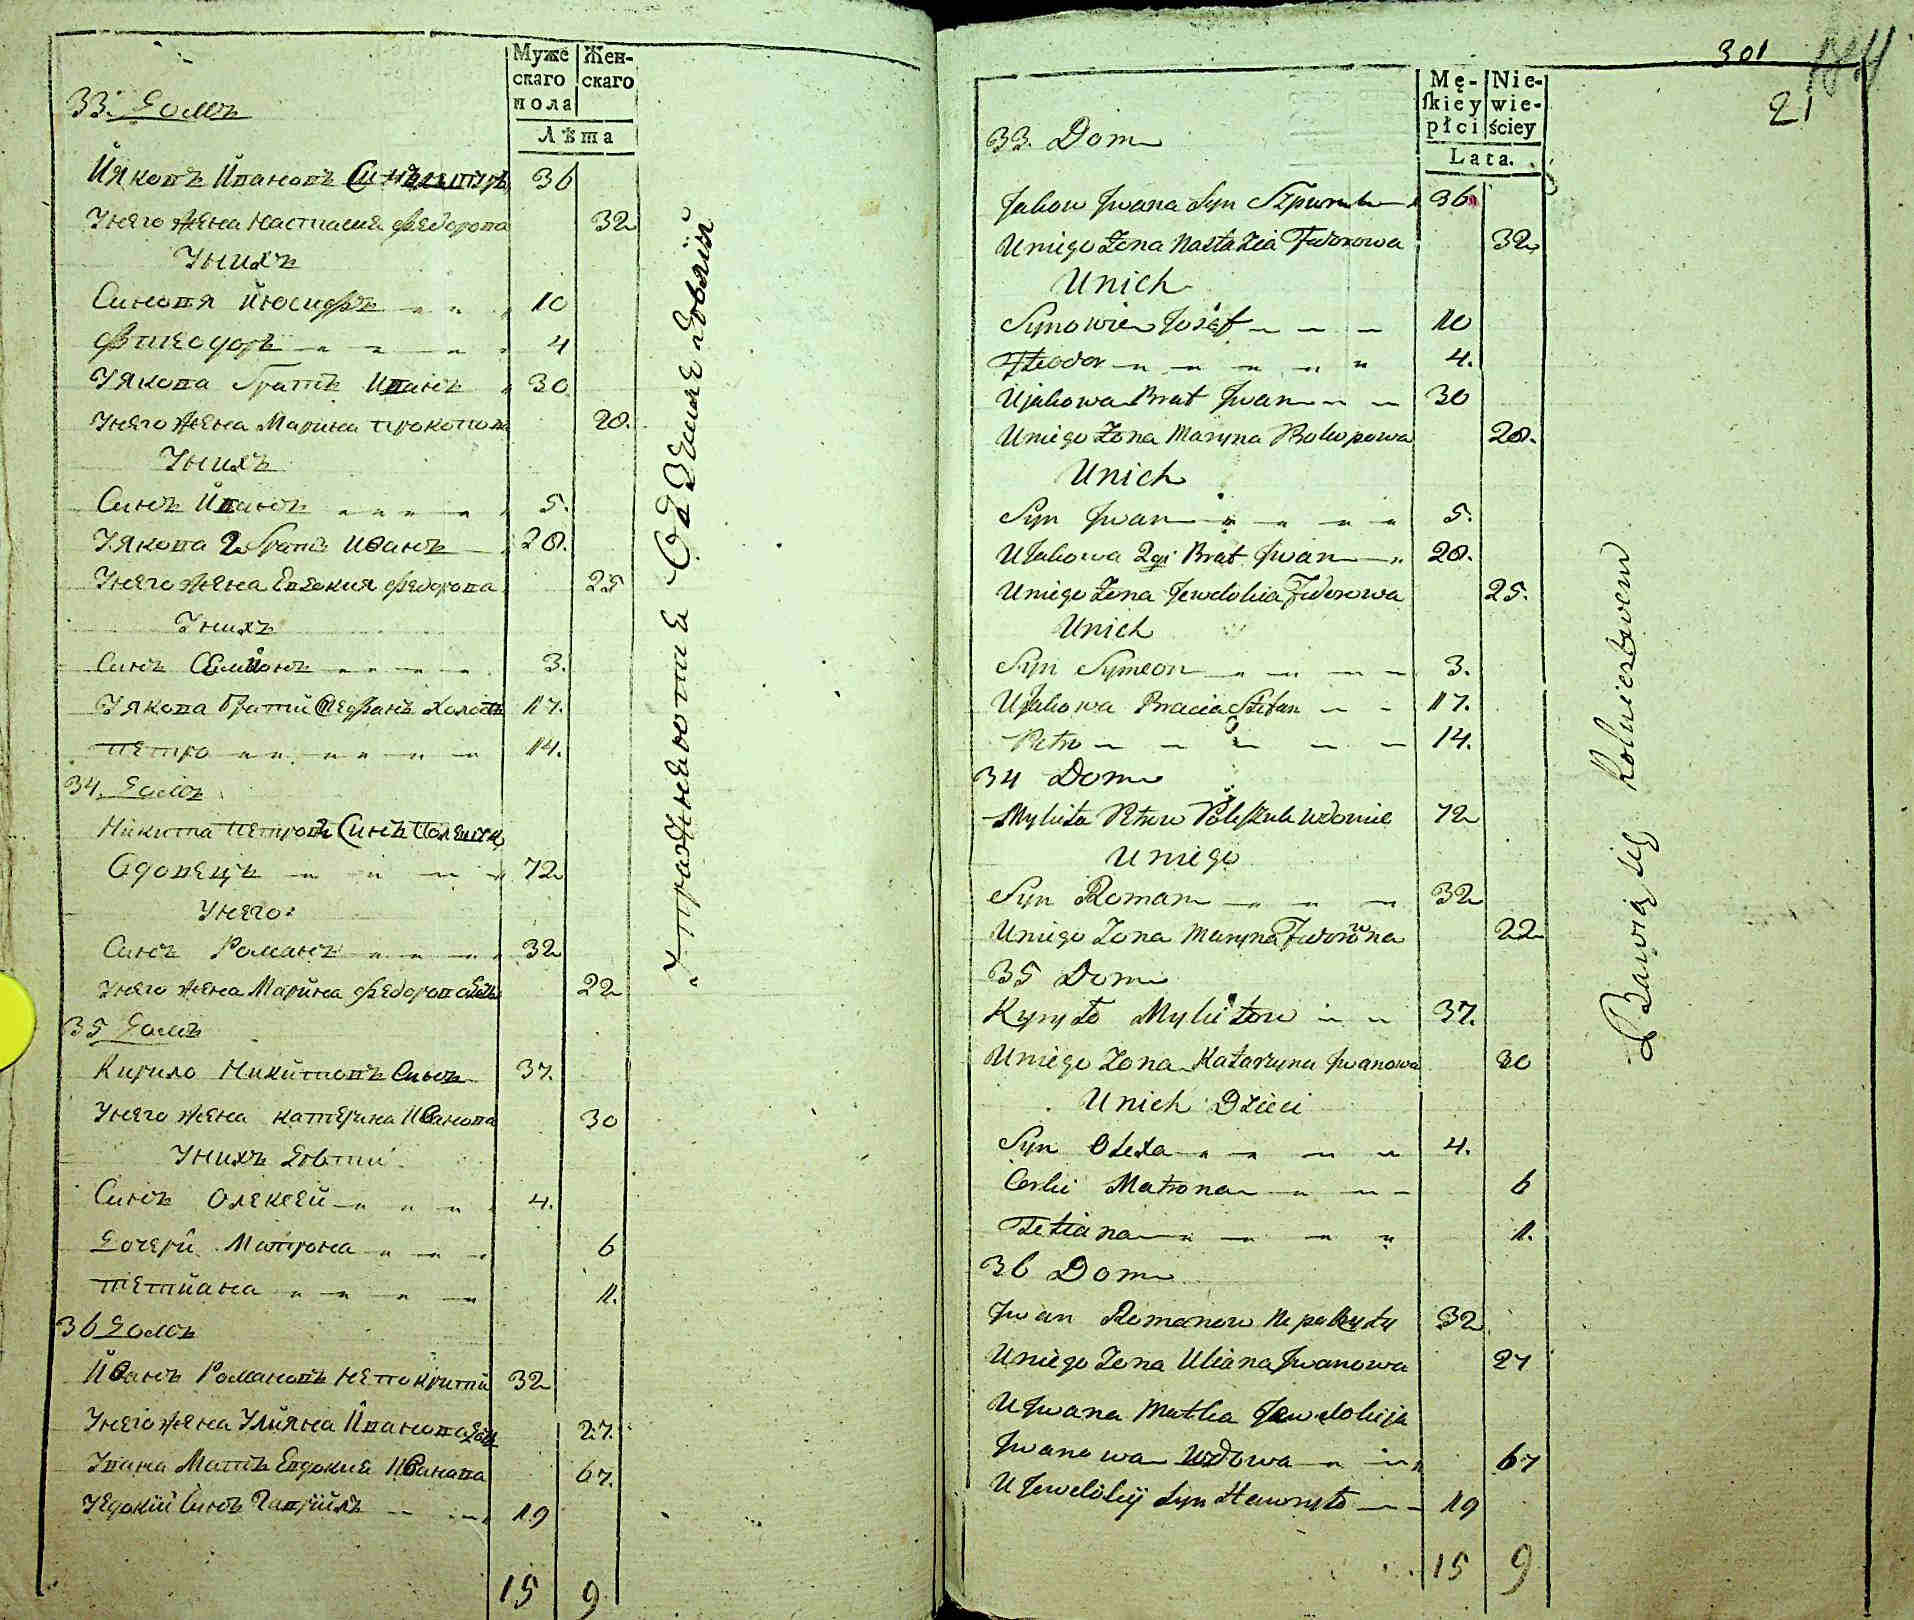 Муже
скаго
пола
Жен-
скаго
Лѣта
33. Домъ
Йяковъ Ивановъ Синъ 36
У него жена Настасия Федорова 32
У нихъ
Синовя Июсифъ 10
Фтеодоръ 4
У Якова братъ Иванъ 30
У него жена Марина Прокопова 28.
У нихъ
Синъ Иванъ 5.
У Якова 2 братъ Иванъ 28.
У него жена Евдокия Федорова 25
У нихъ
Синъ Семйонъ 3.
У Якова братий Стефанъ холостъ 17.
Петро 14.
34. Домъ
Никита Петровъ Синъ Полешук
Вдовецъ 72
У него:
Синъ Романъ 32
У него жена Марйна Федорова 22
35 Домъ
Кирило Никитовъ Синъ 37.
У него жена Катерина Иванова 30
У нихъ Дѣти
Синъ Олексей 4.
Дочери Матрона 6
Тетйана 1.
36 Домъ
Иванъ Романовъ Непокритй 32
У него жена Улйяна Иванова 27.
Ивана Мать Евдокия Иванова 67.
У Едокий Синъ Гаврййлъ 19
15 9
Упражняются Воздѣлие
301
21
Mę-
ſkiey
płci
Nie-
wie-
ściey
Lata.
33. Dom
Jakow Jwana Syn 36
Uniego Zona Nastazia Fedorowa 32
Unich
Synowie Jozef 10
Fteodor 4.
Ujakowa Brat Jwan 30
Uniego Zona Maryna Prokopowa 28.
Unich
Syn Jwan 5.
UJakowa 2gi Brat Jwan 28.
Uniego Zona Jewdokia Fedorowa 25.
Unich
Syn Symeon 3.
UJakowa Bracia Stefan 17.
Petro 14.
34 Dom
Mykita Petrow Poleszuk Wdowiec 72
Uniego
Syn Roman 32
Uniego Zona Maryna Fedorowna 22
35 Dom
Kyryło Mykitow 37.
Uniego Zona Katarzyna Jwanowa 30
Unich Dzieci
Syn Olexa 4.
Corki Matrona 6
Tetiana 1.
36 Dom
Jwan Romanow Nepokryty 32
Uniego Zona Uliana Jwanowa 27
UJwana Matka Jewdokija
Jwanowa Wdowa 67
UJewdokij Syn Hawryło 19
15 9
Bawią się Rolnictwem